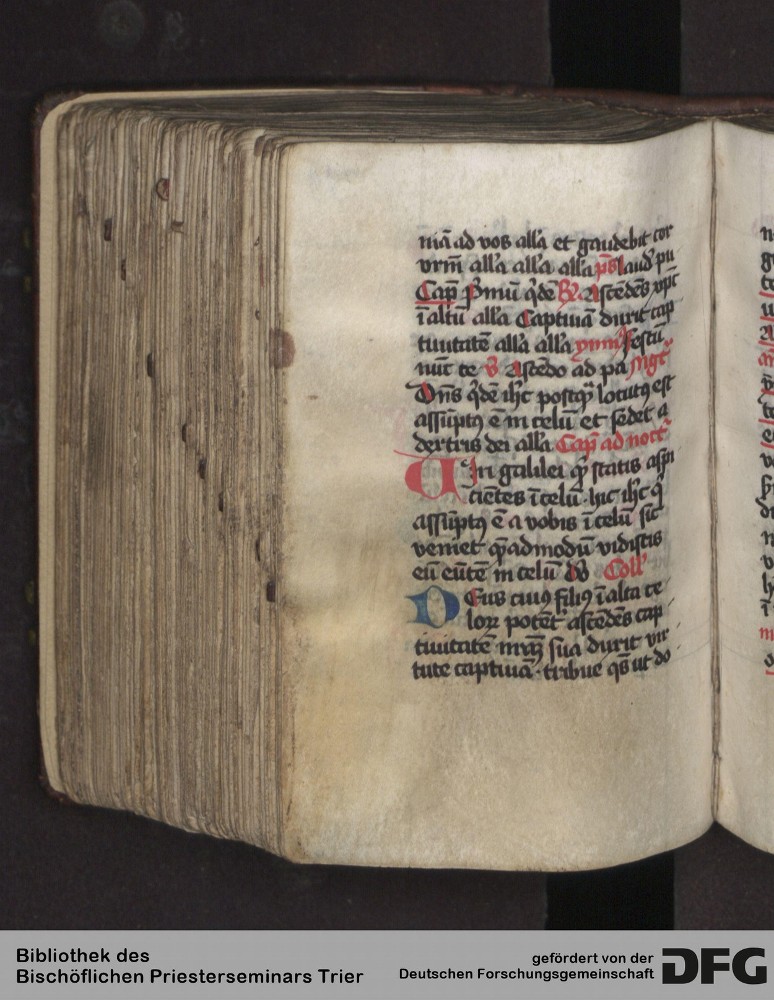 niā ad vos alla et gaudebit cor
vrm̄ alla alla alla ps laud pu
Cap̄ Pmū qͥde R Ascēdēs xpc̄
ī altū alla Captiuā duxit cap
tiuitatē alla alla ymn9 Festū
nūc te v Ascēdo ad pa Mgt
Dn̄s qͥdē ih̄c postqͣ locut9 est
assūpt9 ē in celū et sedet a
dextris dei alla Cap̄ ad noct
Uiri galilei qͥ statis aspi
cientes ī celū hic ih̄c qͥ
assūpt9 ē a vobis ī celū sic
veniet qͣadmodū vidistis
eū eūtē in celū Coll
Deus cui9 fili9 ī alta ce
lor potēt ascēdēs cap
tiuitatē nr̄aʒ sua duxit vir
tute captiuā tribue qs ut do
Bibliothek des
Bischöflichen Priesterseminars Trier
gefördert von der
Deutschen Forschungsgemeinschaft
DFG